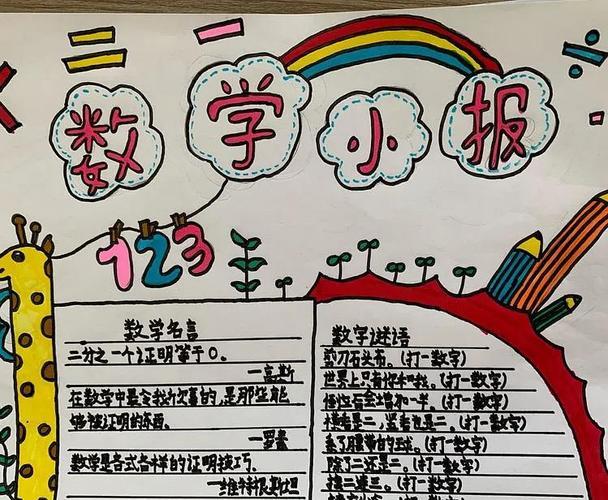 数学小报
123
数学名言
二分之一个证明等于0。
—高斯
在数学中最令我欣喜的,是那些能
够被证明的东西。
—罗素
数学是各式各样的证明技巧。
—维特根斯坦
数字谜语
剪刀石头布。(打一数字)
世界上只有你和我。(打一数字)
(打一数字)
横看是二,竖看也是二。(打一数字)
丢了腰带的 球。(打一数字)
除了二还是二。(打一数字)
接二连三。(打一数字)